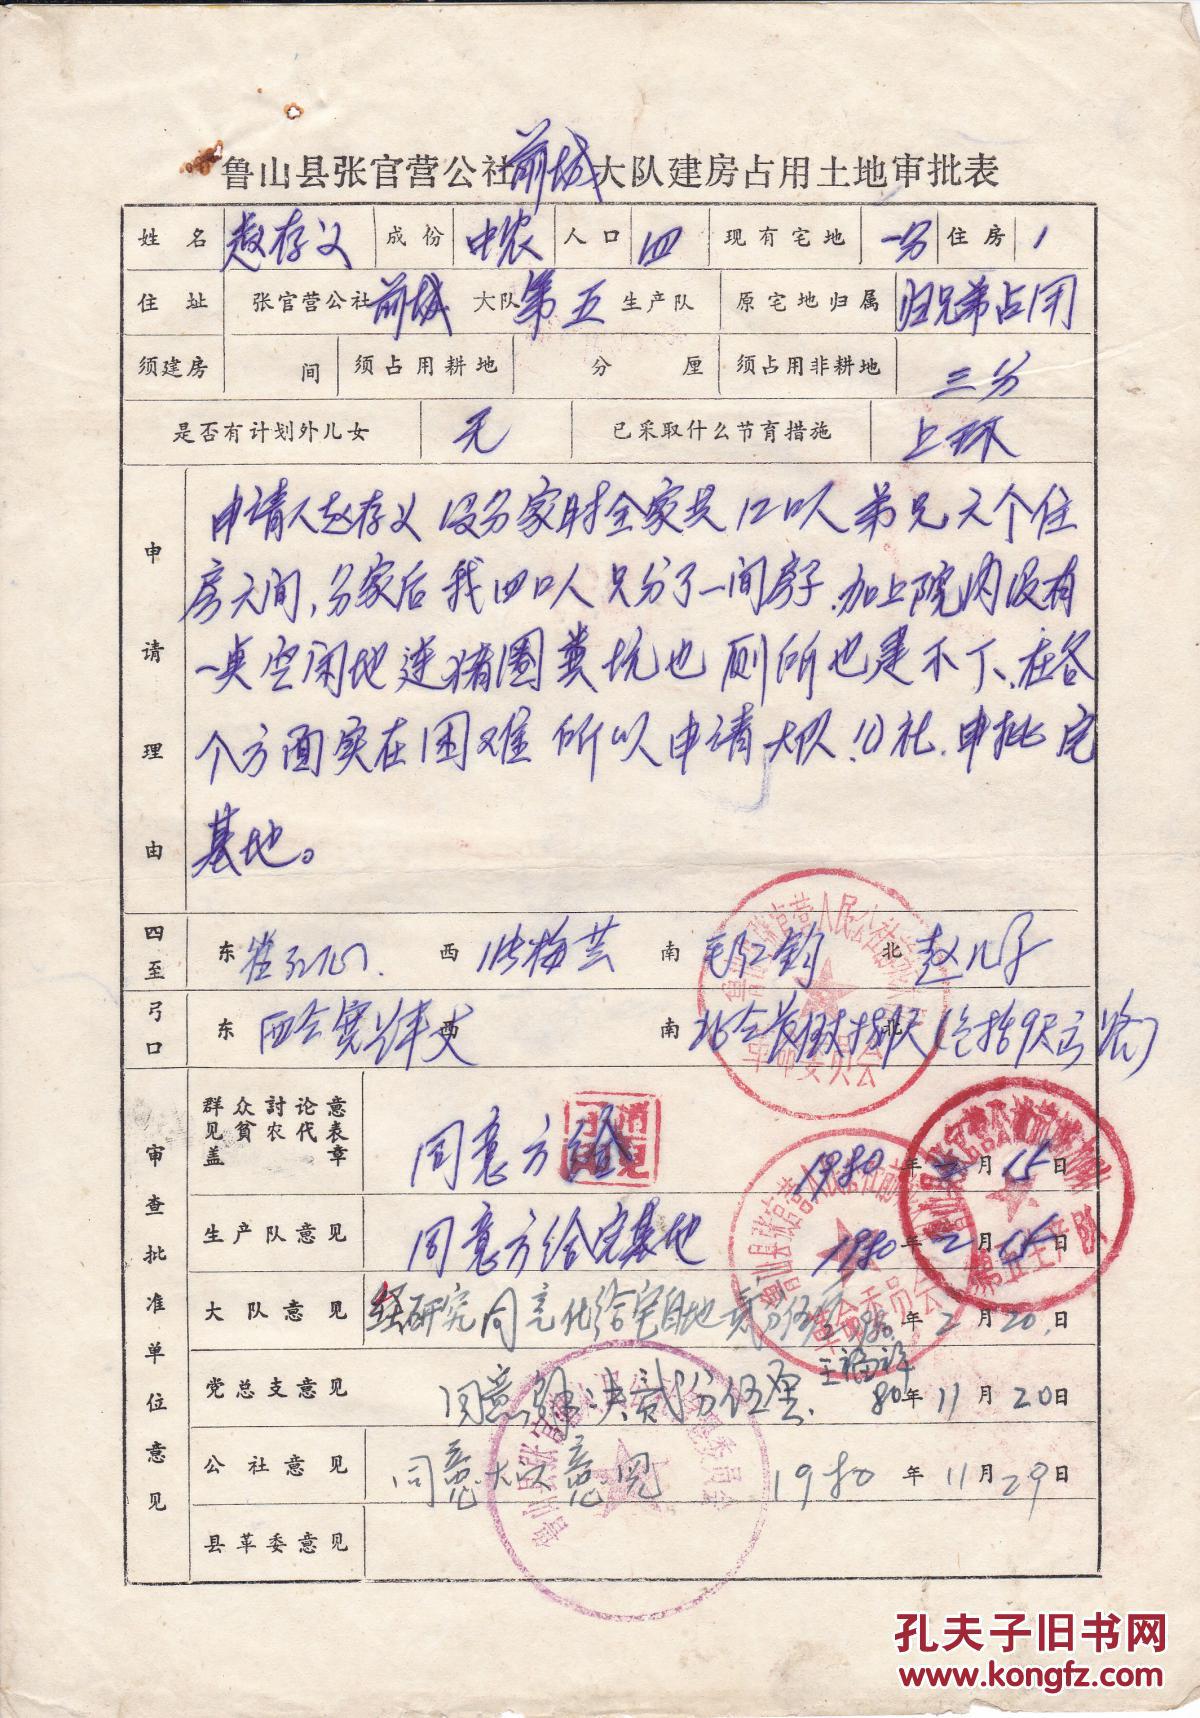 鲁山县张官营公社前城大队建房占用土地审批表
姓名 赵存义 成份 中农 人口 四 现有宅地 一分 住房 1
住址 张官营公社前城大队第五生产队 原宅地归属 归兄弟占用
须建房 间 须占用耕地 分 厘 须占用非耕地 三分
是否有计划外儿女 无 已采取什么节育措施 上环
申请理由
申请人赵存义 没分家时全家共12口人 弟兄 个住
房 间、分家后我四口人只分了一间房子、加上院内没有
一点空闲地连猪圈粪坑也 厕所也建不下、在各
个方面实在困难 所以申请大队、公社、申批宅
基地。
四至 东 西 张梅芸 南 北 赵
弓口 东 西 南 北
审查批准单位意见
群众討论意见贫农代表盖章 同意方给 1980年 月15日
生产队意见 同意方给宅基地 1980年2月15日
大队意见 经研究同意 给宅基地贰分伍厘 1980年2月20日
王福祥
党总支意见 同意解决贰分伍厘. 80年11月20日
公社意见 同意大队意见 1980年11月29日
县革委意见
鲁山县张官营人民公社
革命委员会
鲁山县张官营人民公社前城
革命委员会
第五生产队
孔夫子旧书网
www.kongfz.com